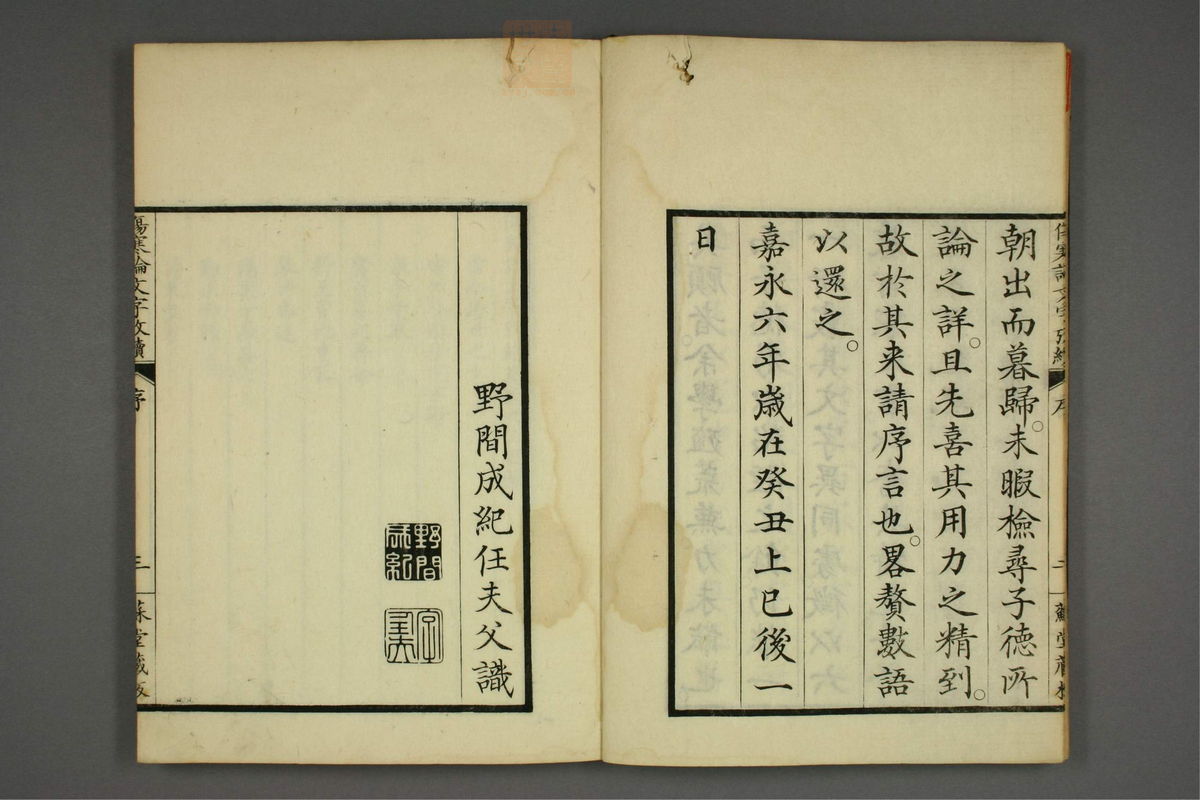 朝出而暮歸。未暇檢尋子德所
論之詳。且先喜其用力之精到。
故於其来請序言也。畧贅數語
以還之。
嘉永六年歳在癸丑上巳後一
日
野間成紀任夫父識
野間
成紀
傷寒論文字攷續
序
三